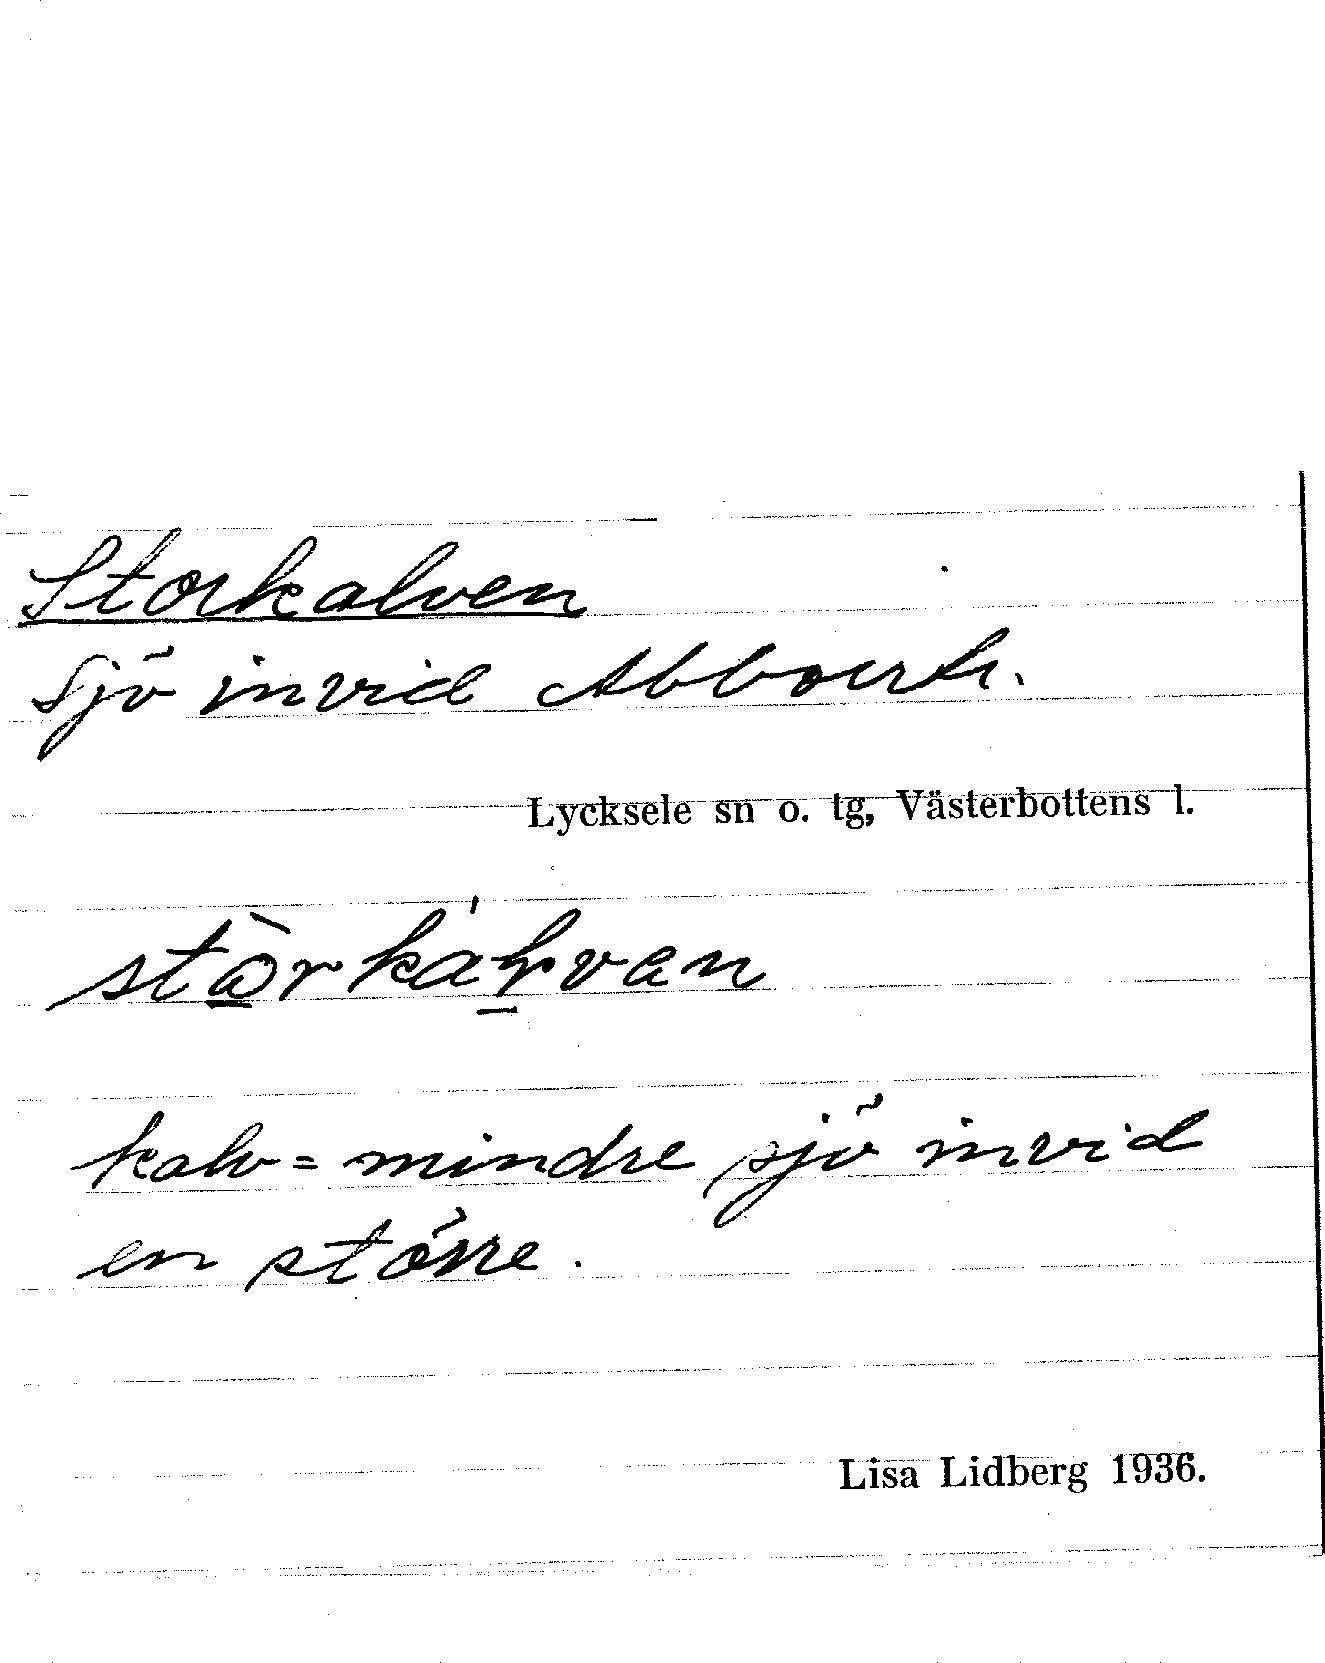 Storkalven
Sjö invid Abbortr.
Lycksele sn o. tg, Västerbottens l.
kalv = mindre sjö invid
en större.
Lisa Lidberg 1936.